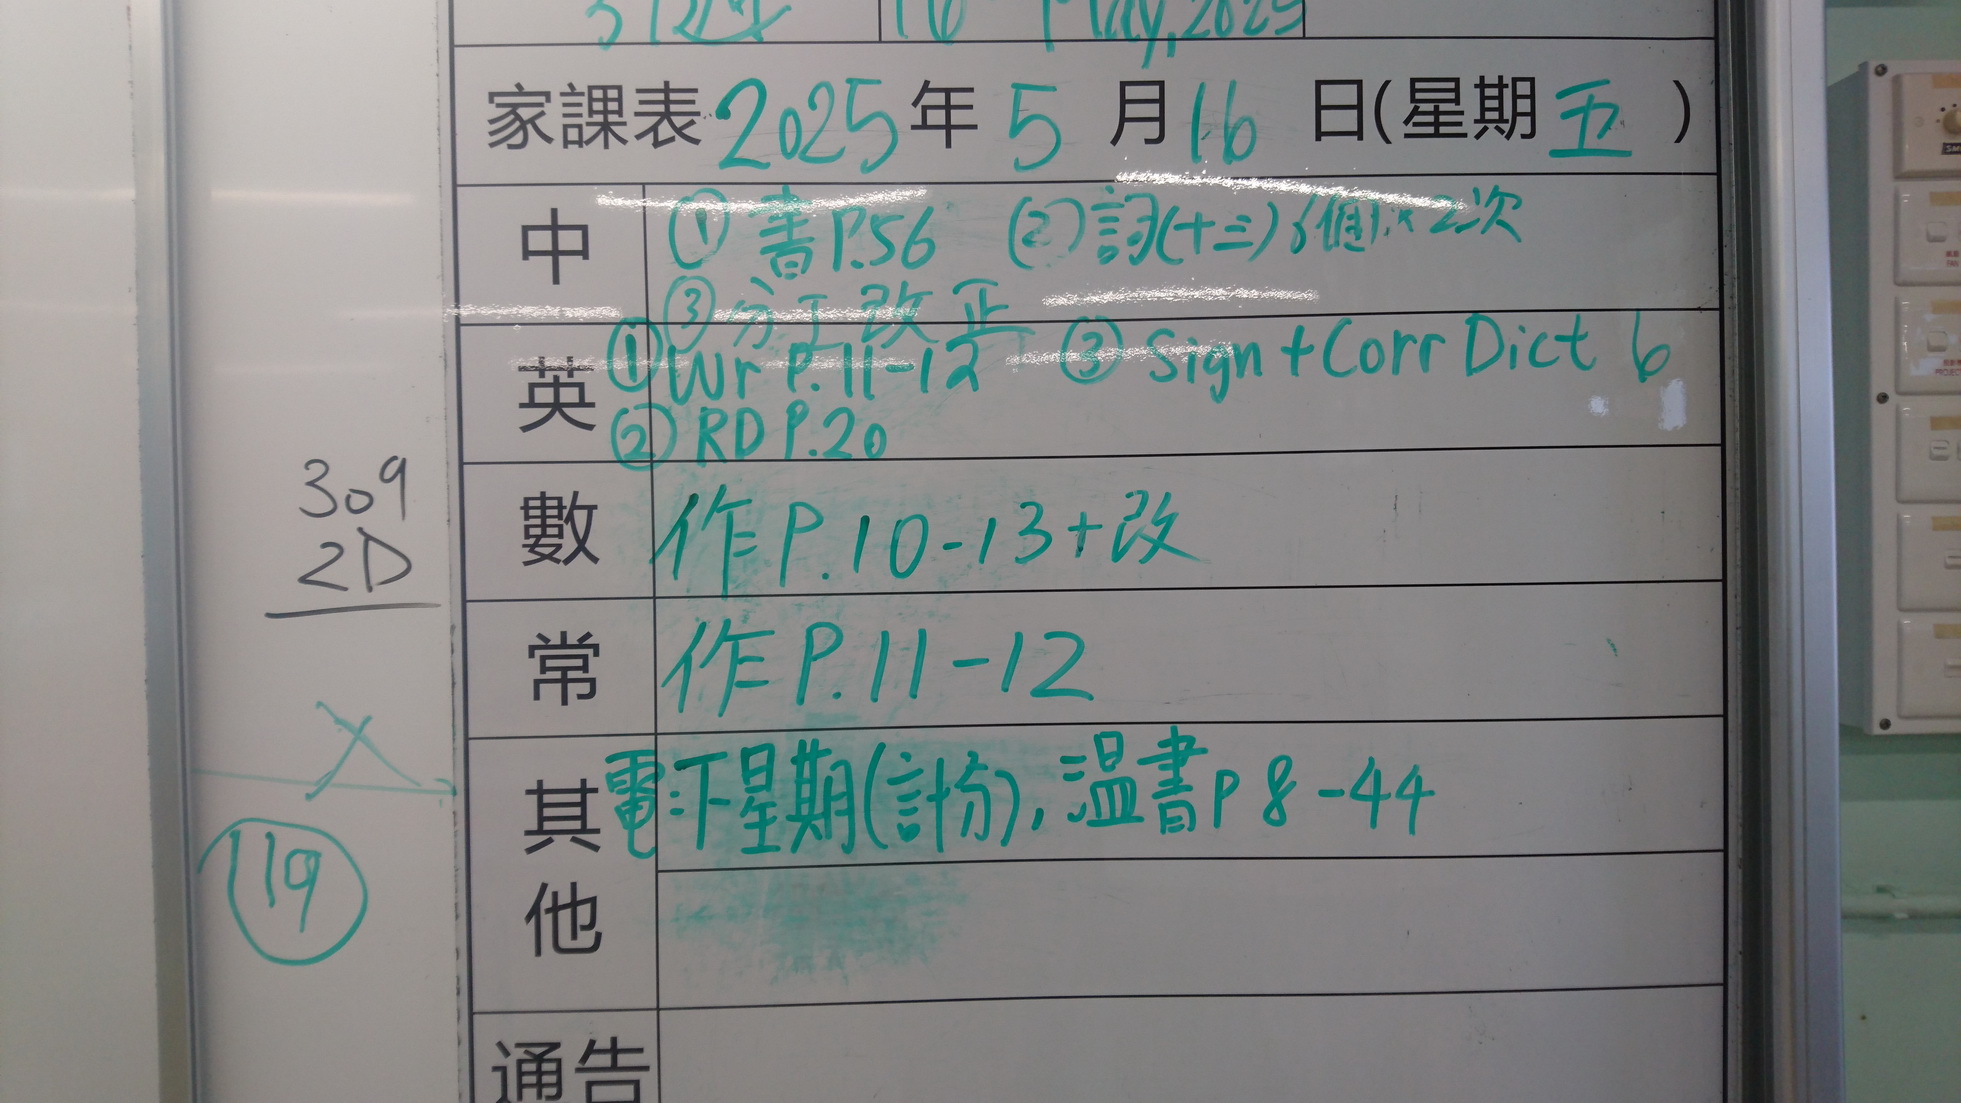 May, 2025
家課表 2025 年 5 月 16 日(星期 五 )
中 ① 書P.56 ② 詞(十三) 6個×2次
③ 分丁改正
英 ① Wr P.11-12 ③ Sign + Corr Dict 6
② RD P.20
數 作 P.10-13+改
常 作 P.11-12
其他 電:下星期(計分), 温書P 8-44
通告
309
2D
119